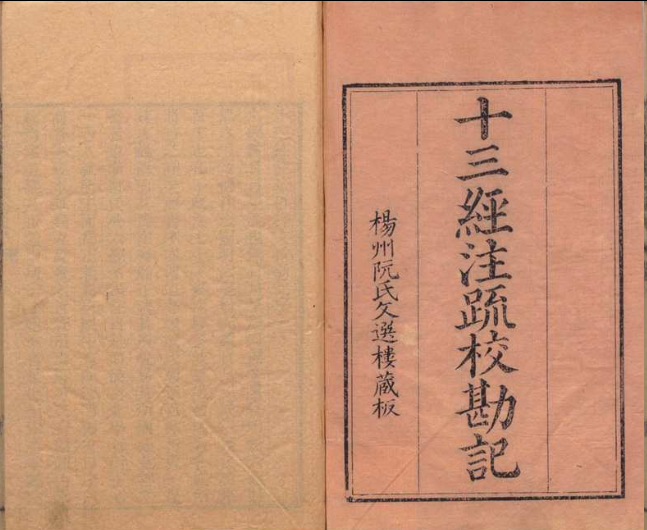 十三經注疏校勘記
楊州阮氏文選樓藏板